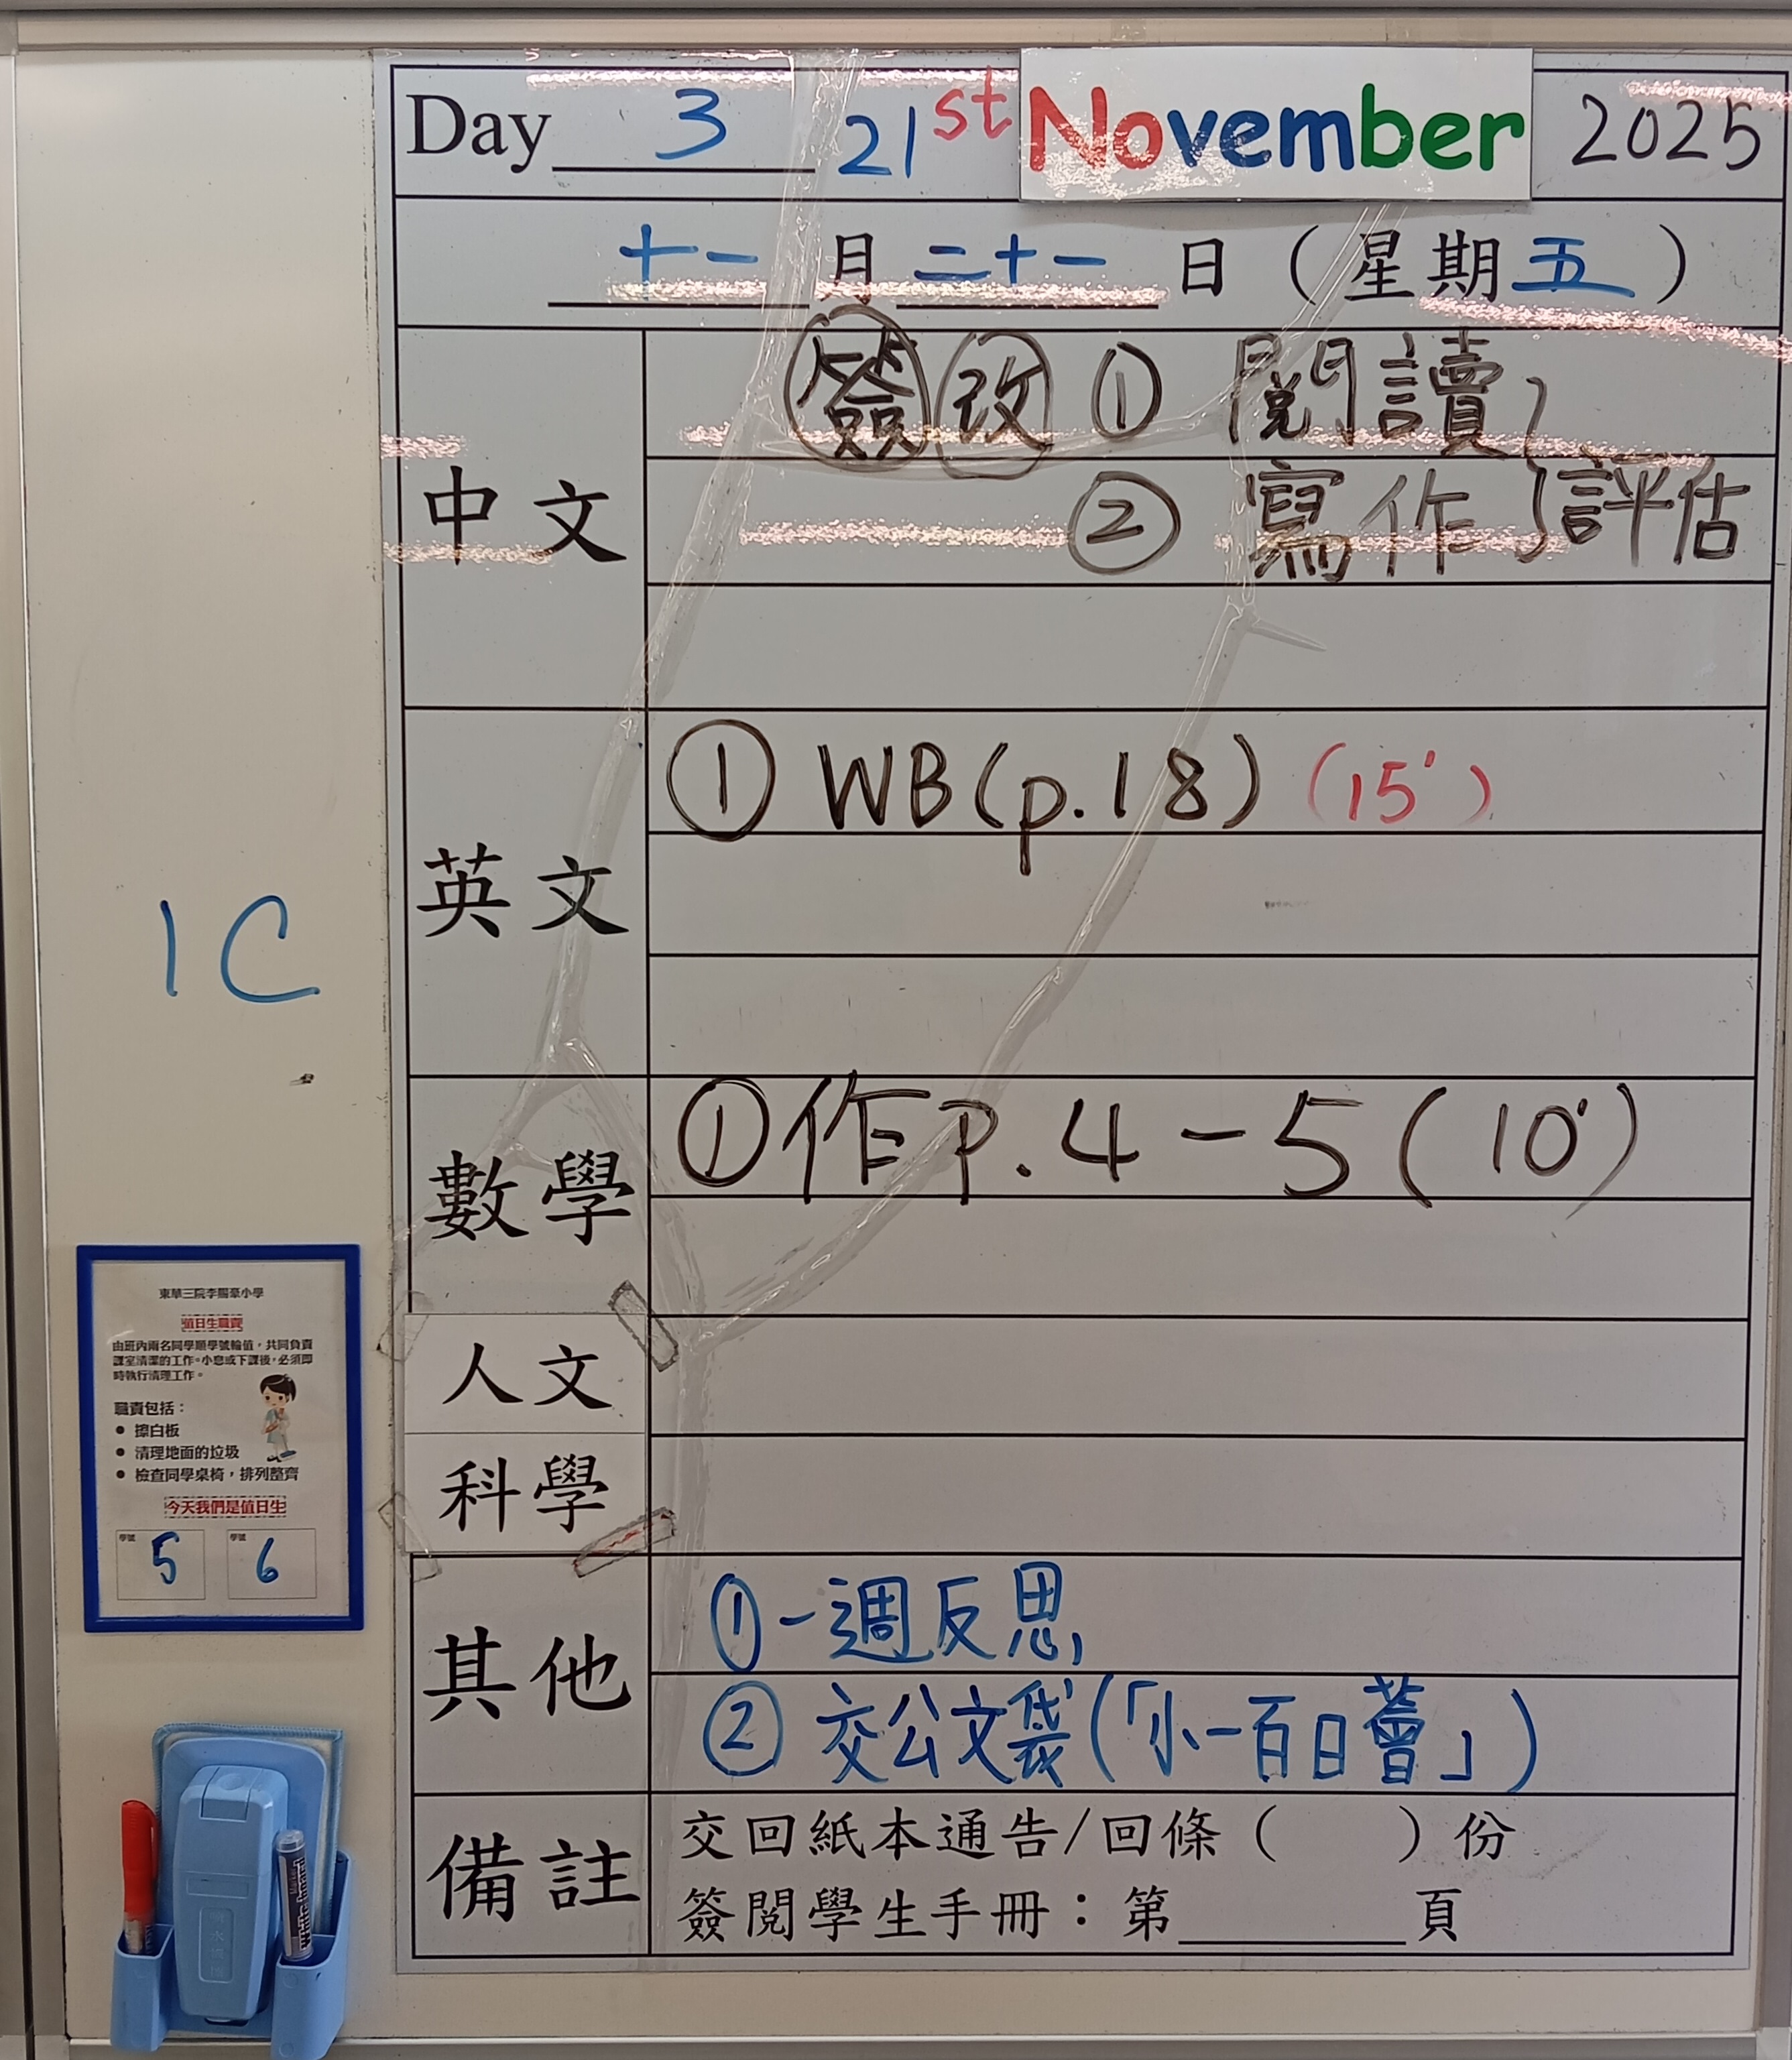 Day 3 21st November 2025
十一月二十一日(星期五)
中文
簽 改 ① 閱讀
② 寫作 } 評估
英文
① WB(p.18) (15')
數學
① 作 P.4-5 (10')
人文
科學
其他
① 一週反思
② 交公文袋(「小一百日薈」)
備註
交回紙本通告/回條( )份
簽閱學生手冊:第______頁
1C
東華三院李賜豪小學
值日生職責
由班內兩名同學順學號輪值,共同負責
課室清潔的工作。小息或下課後,必須即
時執行清理工作。
職責包括:
• 擦白板
• 清理地面的垃圾
• 檢查同學桌椅,排列整齊
今天我們是值日生
學號 5
學號 6